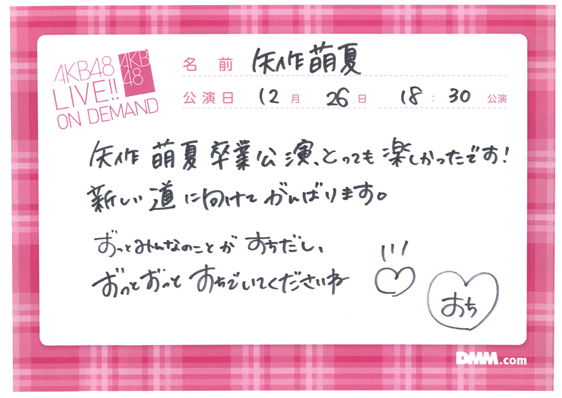 AKB48
LIVE!!
ON DEMAND
AKB
48
名前 矢作萌夏
公演日 12月 26日 18:30 公演
矢作 萌夏 卒業公演、とっても楽しかったです!
新しい道に向けて がんばります。
ずっとみんなのことが すきだし、
ずっとずっと すきでいてくださいね
おち
DMM.com